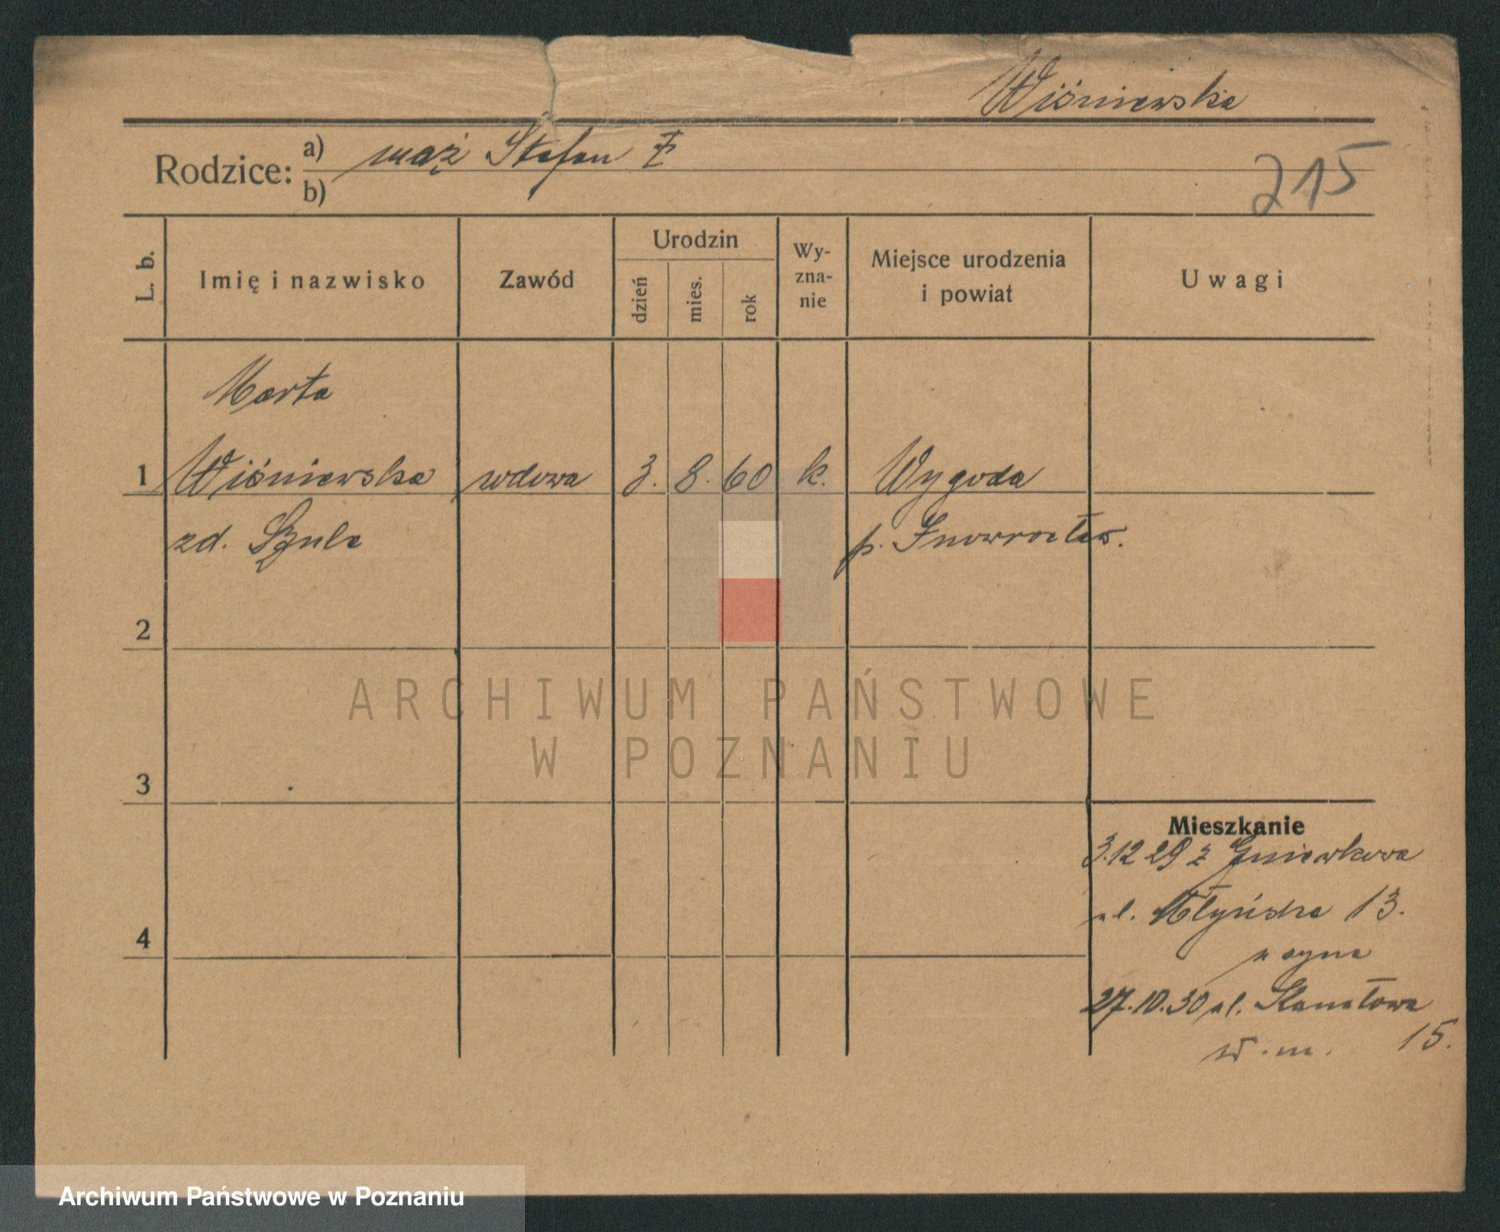 Wiśniewska
Rodzice: a) mąż Stefan Ż
b)
215
L. b.
Imię i nazwisko
Zawód
Urodzin
dzień
mies.
rok
Wy-
zna-
nie
Miejsce urodzenia
i powiat
Uwagi
Marta
1 Wiśniewska wdowa 3. 8. 60 k. Wygoda
zd. Szulc p. Inowrocław.
2
3
4
Mieszkanie
3.12 29 z Gniewkowa
ul. Młyńska 13.
u syna
27.10.30 ul. Kanałowa
w.m. 15.
ARCHIWUM PAŃSTWOWE
W POZNANIU
Archiwum Państwowe w Poznaniu